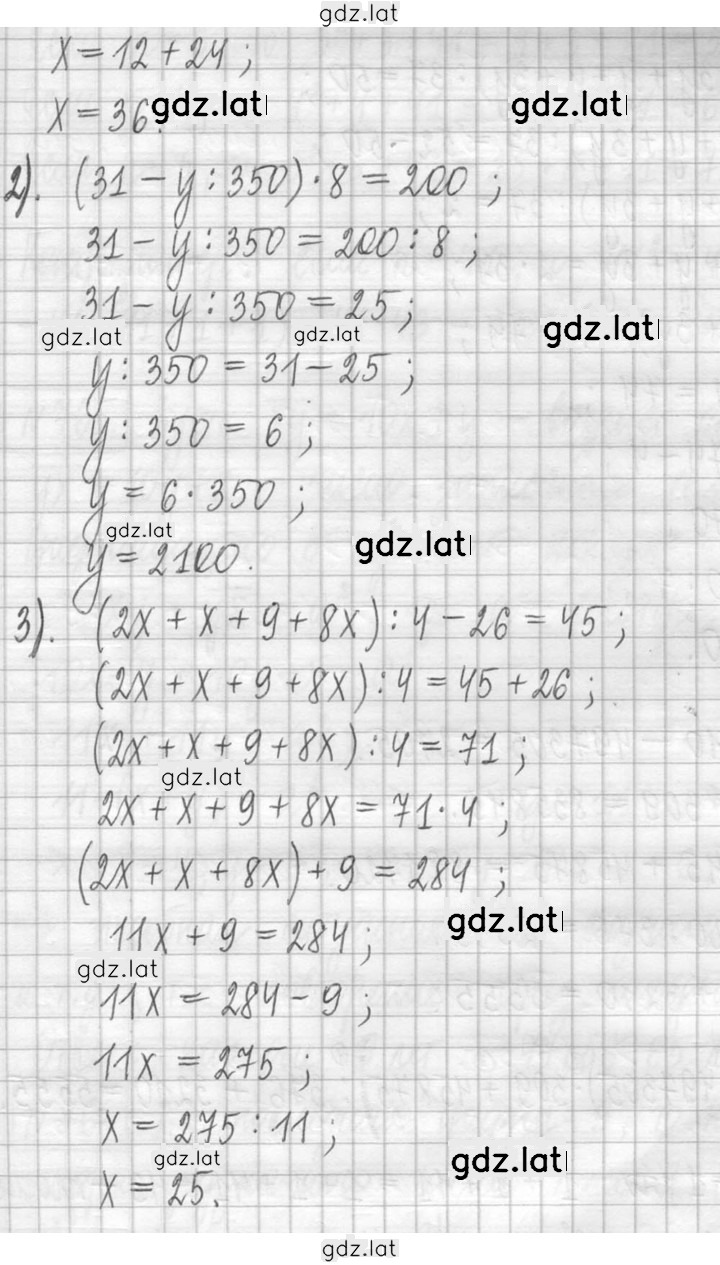 gdz.lat
x = 12 + 24 ;
x = 36. gdz.lat gdz.lat
2). (31 - y : 350) · 8 = 200 ;
31 - y : 350 = 200 : 8 ;
31 - y : 350 = 25 ;
gdz.lat gdz.lat gdz.lat
y : 350 = 31 - 25 ;
y : 350 = 6 ;
y = 6 · 350 ;
gdz.lat gdz.lat
y = 2100.
3). (2x + x + 9 + 8x) : 4 - 26 = 45 ;
(2x + x + 9 + 8x) : 4 = 45 + 26 ;
(2x + x + 9 + 8x) : 4 = 71 ;
gdz.lat
2x + x + 9 + 8x = 71 · 4 ;
(2x + x + 8x) + 9 = 284 ;
gdz.lat
11x + 9 = 284 ;
gdz.lat
11x = 284 - 9 ;
11x = 275 ;
x = 275 : 11 ;
gdz.lat gdz.lat
x = 25.
gdz.lat